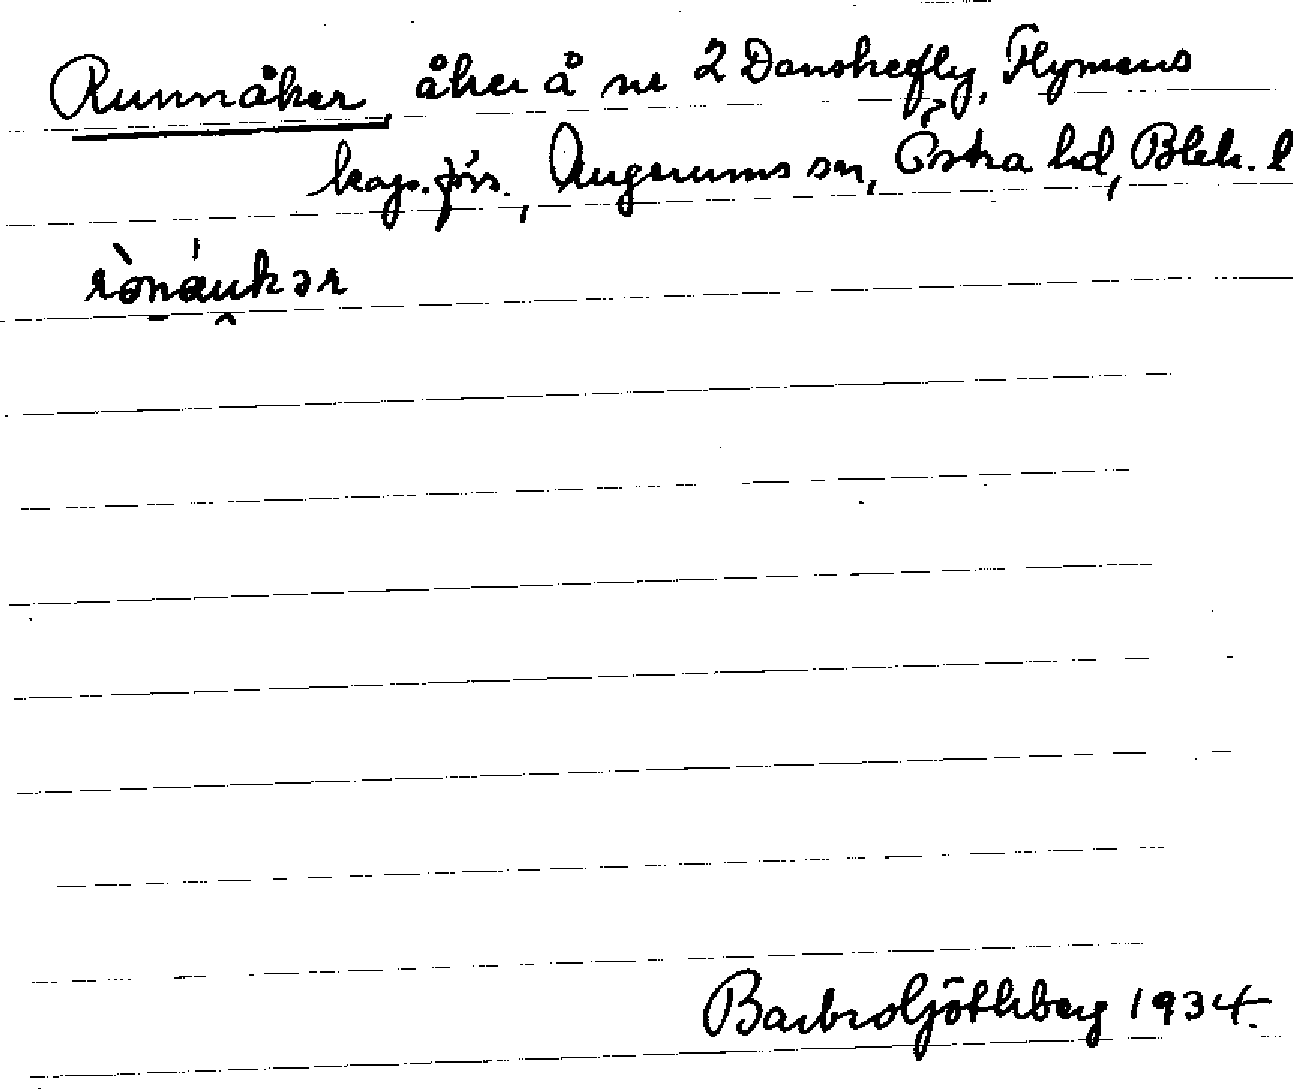 Runnåker, åker å nr 2 Danskefly, Flymens
kap.förs., Augerums sn, Östra hd, Blek. l
rònáukər
Barbro Göthberg 1934.